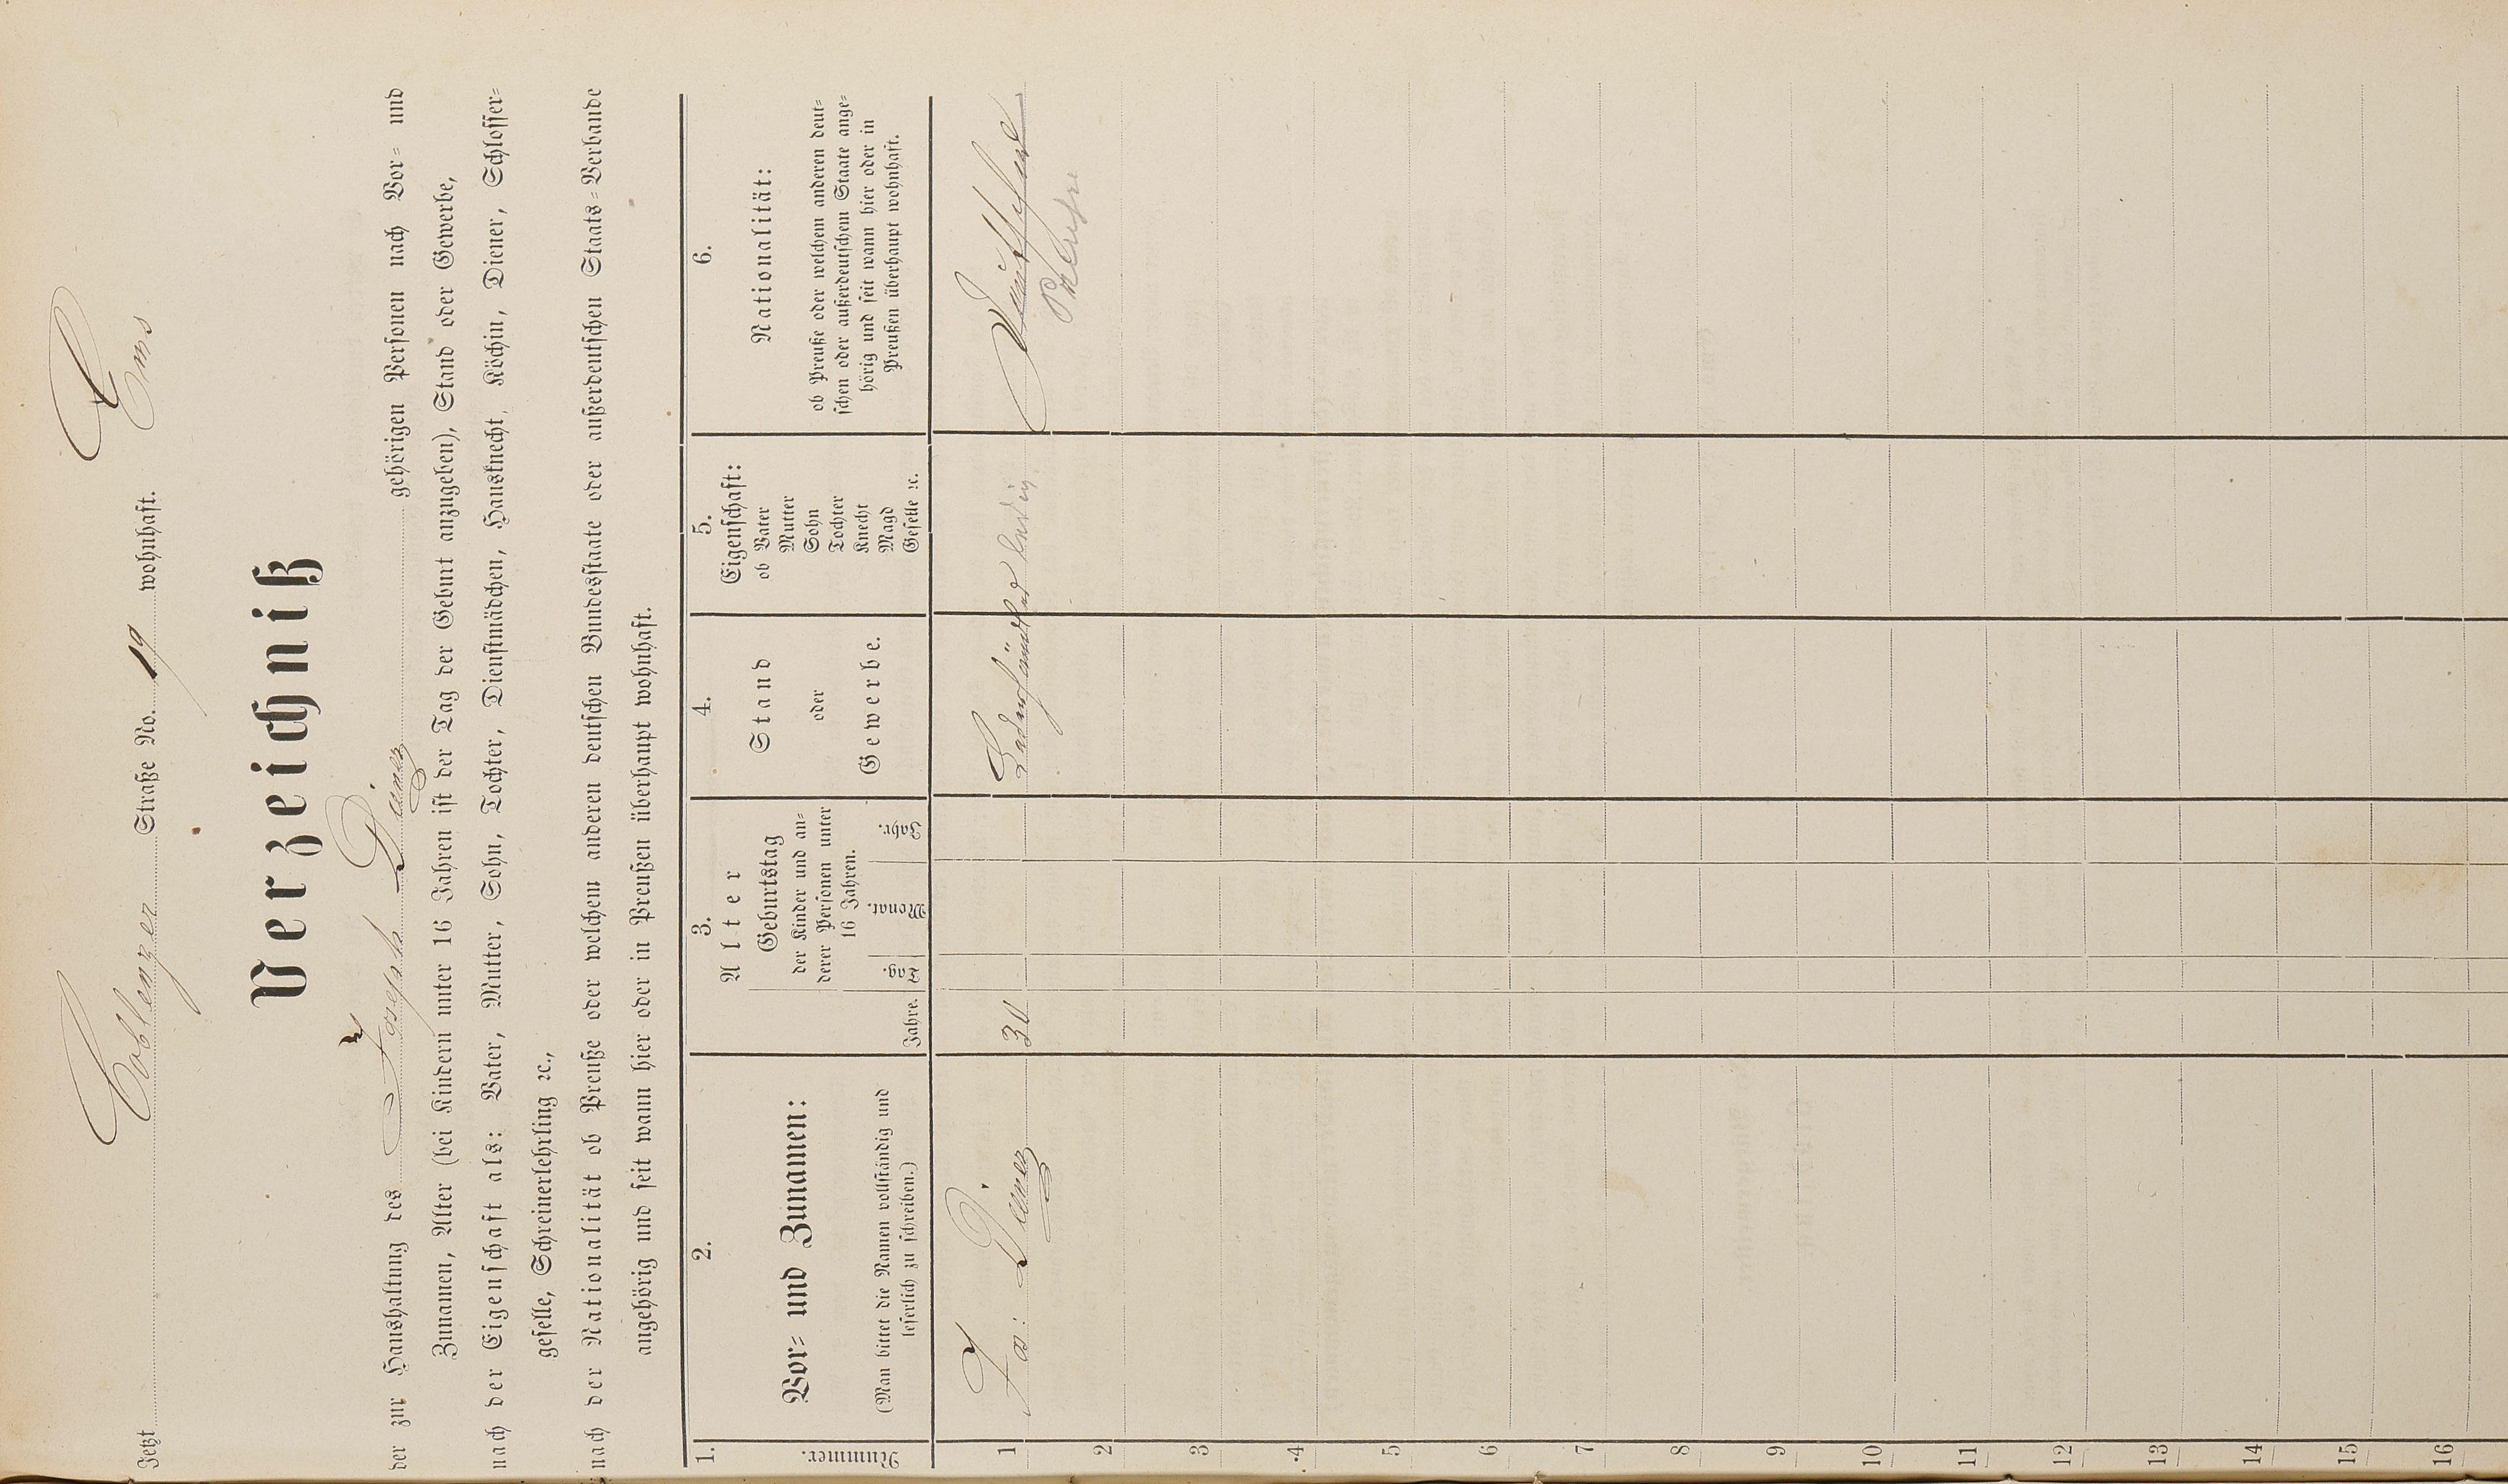 Ems
Jetzt Coblenzer Straße No. 19 wohnhaft.
Verzeichniß
der zur Haushaltung des Joseph Diener gehörigen Personen nach Vor- und
Zunamen, Alter (bei Kindern unter 16 Jahren ist der Tag der Geburt anzugeben), Stand oder Gewerbe,
nach der Eigenschaft als: Vater, Mutter, Sohn, Tochter, Dienstmädchen, Hausknecht, Köchin, Diener, Schlosser-
geselle, Schreinerlehrling ꝛc.,
nach der Nationalität ob Preuße oder welchem anderen deutschen Bundesstaate oder außerdeutschen Staats-Verbande
angehörig und seit wann hier oder in Preußen überhaupt wohnhaft.
1.
Nummer.
2.
Vor- und Zunamen:
(Man bittet die Namen vollständig und
leserlich zu schreiben.)
3.
Alter
Jahre.
Geburtstag
der Kinder und an-
derer Personen unter
16 Jahren.
Tag. Monat. Jahr.
4.
Stand
oder
Gewerbe.
5.
Eigenschaft:
ob Vater
Mutter
Sohn
Tochter
Knecht
Magd
Geselle ꝛc.
6.
Nationalität:
ob Preuße oder welchem anderen deut-
schen oder außerdeutschem Staate ange-
hörig und seit wann hier oder in
Preußen überhaupt wohnhaft.
1 Jos: Diener 30 Lederhändler ledig Deutschland
Preuße
2
3
4
5
6
7
8
9
10
11
12
13
14
15
16